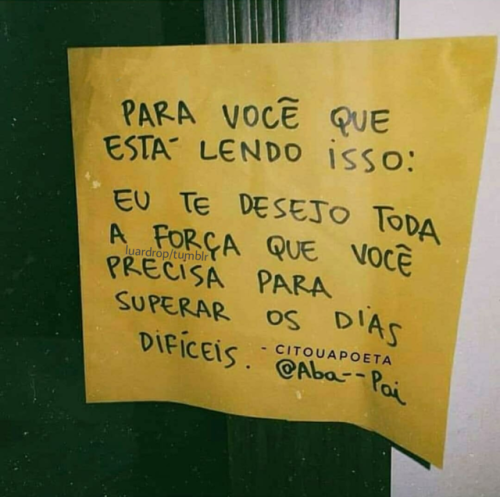 PARA VOCÊ QUE
ESTÁ LENDO ISSO:
EU TE DESEJO TODA
A FORÇA QUE VOCÊ
luardrop/tumblr
PRECISA PARA
SUPERAR OS DIAS
DIFÍCEIS. - CITOUAPOETA
@Aba--Pai